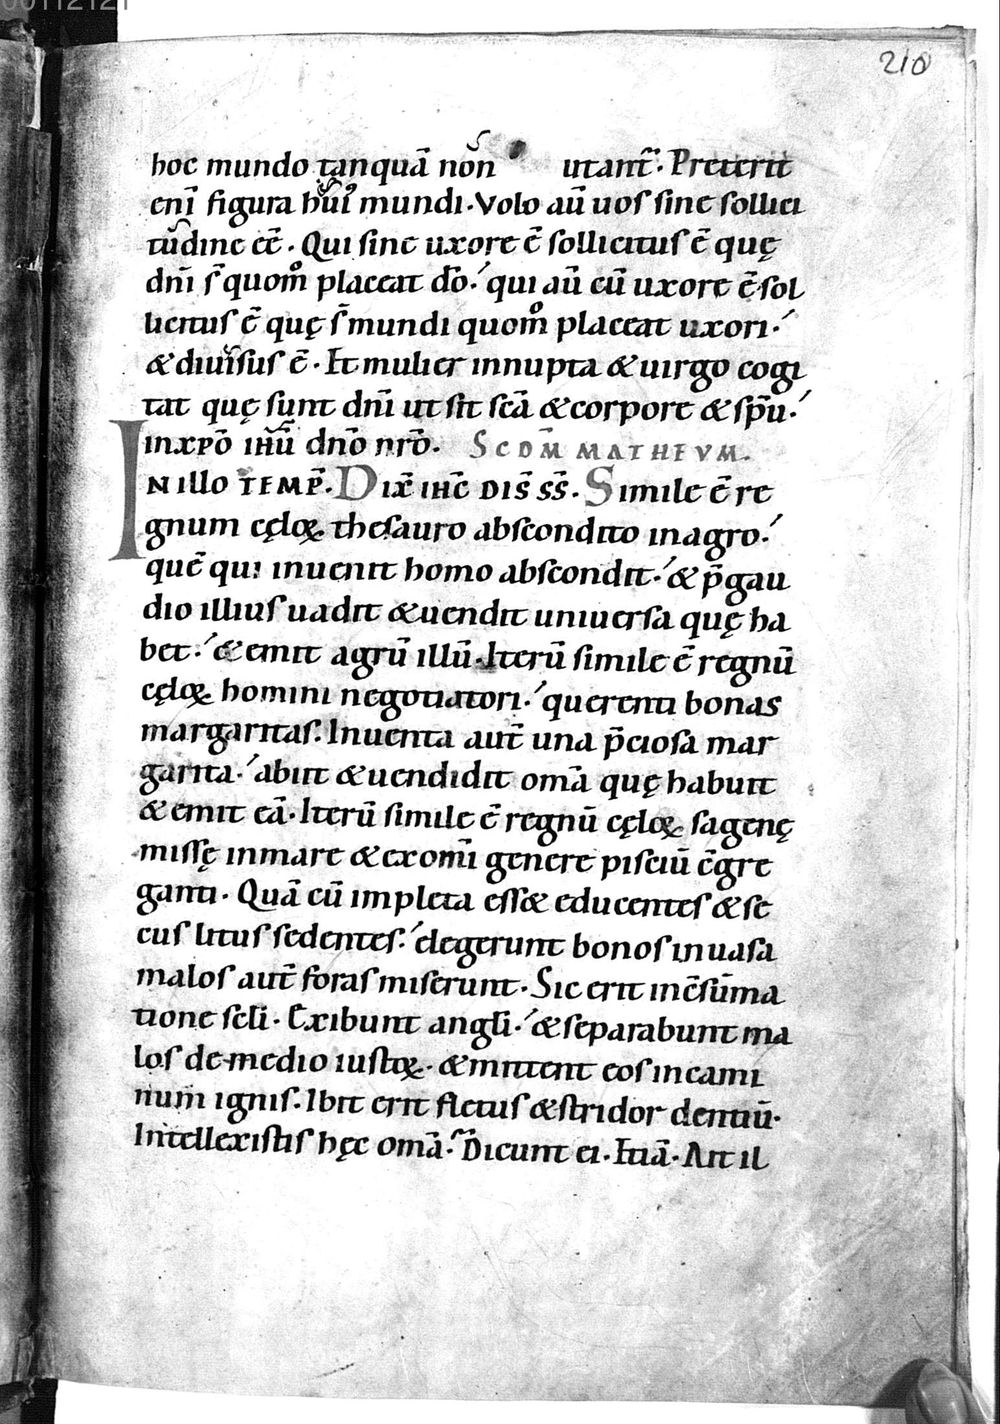 00112121
210
hoc mundo tanquā non utant᷑. Preterit
enī figura huı᷒ mundi. Volo aū uos sine sollici
tudine eē. Qui sine uxore ē sollicitus ē quę
dn̄i s̄ quom̊ placeat dō. qui aū cū uxore ē. sol
licitus ē quę s̄ mundi quom̊ placeat uxori.
& diuisus ē. Et mulier innupta & uirgo cogi
tat quę sunt dn̄i ut sit scā & corpore & sp̄u.
in xp̄o ih̄u dn̄o nr̄o. SCDM̄ MATHEVM.
IN illo TEMP̄. Dix̄ ih̄c DIS̄ SS̄. Simile ē re
gnum cęloꝝ thesauro abscondito in agro.
quē qui inuenit homo abscondit. & p̄ gau
dio illius uadit & uendit uniuersa quę ha
bet. & emit agrū illū. Iterū simile ē regnū
cęloꝝ homini negotiatori. querenti bonas
margaritas. Inuenta aut̄ una p̄ciosa mar
garita. abiit & uendidit omā quę habuit
& emit eā. Iterū simile ē regnū cęloꝝ sagenę
missę in mare & ex om̄i genere pisciū c̄gre
ganti. Quā cū impleta ess& educentes & se
cus litus sedentes. elegerunt bonos in uasa
malos aut̄ foras miserunt. Sic erit in c̄sūma
tione scl̄i. Exibunt angl̄i. & separabunt ma
los de medio iustoꝝ. & mittent eos in cami
num ignis. Ibit erit fletus & stridor dentiū.
Intellexistis hęc omā. Dicunt ei. Etiā. Ait il